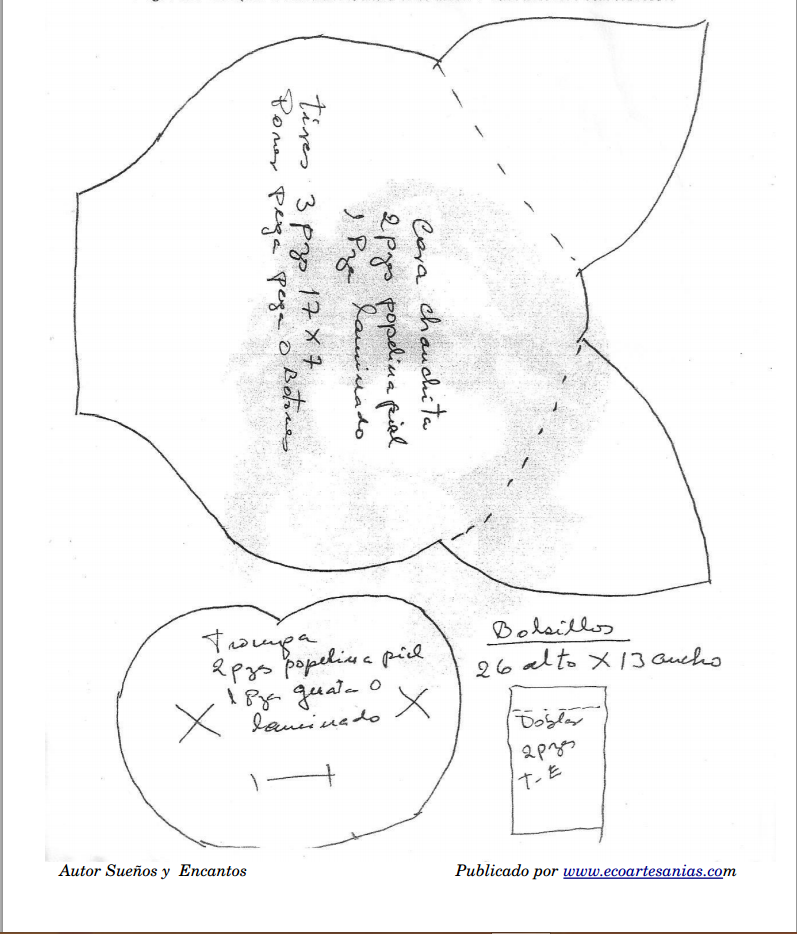 Cara chanchita
2 pzs popelina piel
1 Pza laminado
Tiras 3 pzs 17 x 7
Poner pega pega O Botones
Trompa
2 pzs popelina piel
1 Pza guata O
laminado
Bolsillos
26 alto X 13 ancho
Doblar
2 pzs
T-E
Autor Sueños y Encantos
Publicado por www.ecoartesanias.com